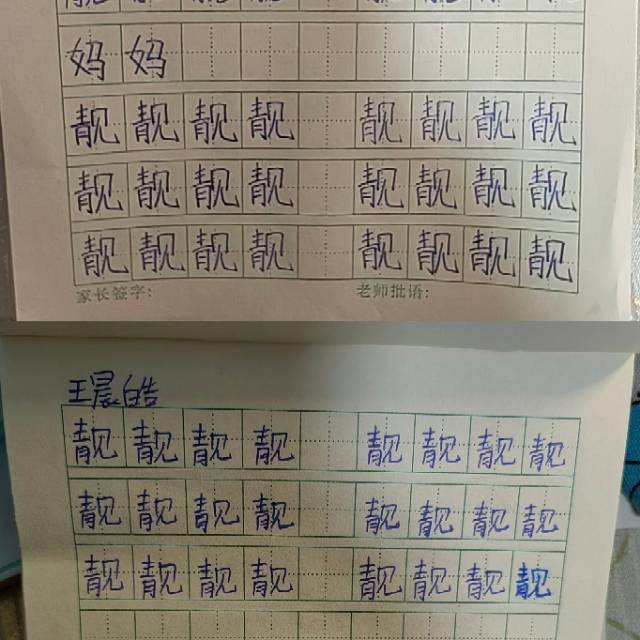 妈妈
靓靓靓靓 靓靓靓靓
靓靓靓靓 靓靓靓靓
靓靓靓靓 靓靓靓靓
家长签字: 老师批语:
王晨皓
靓靓靓靓 靓靓靓靓
靓靓靓靓 靓靓靓靓
靓靓靓靓 靓靓靓靓